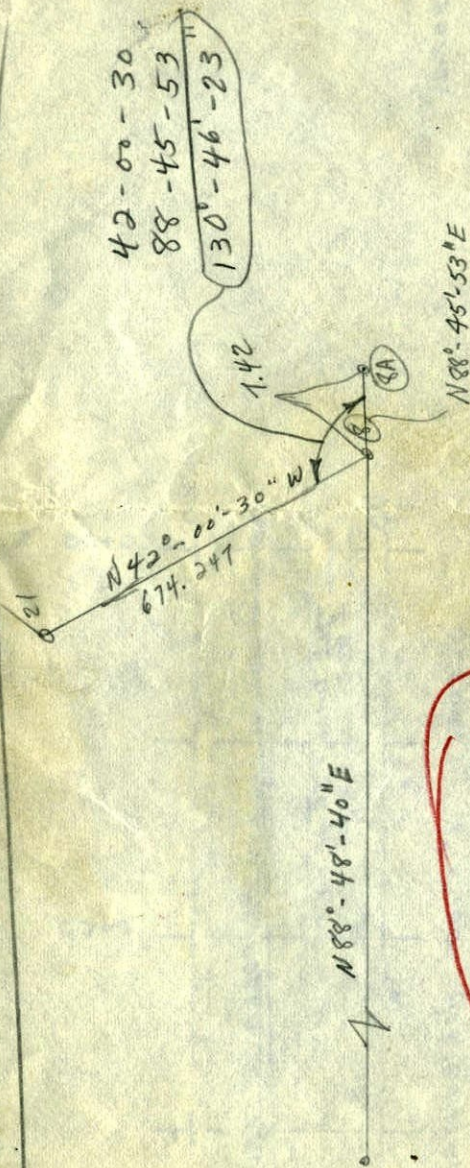 42-00-30
88-45-53
130°-46'-23"
1.42
8A
8
N88°-45'-53"E
21
N42°-00'-30"W
674.247
N88°-48'-40"E